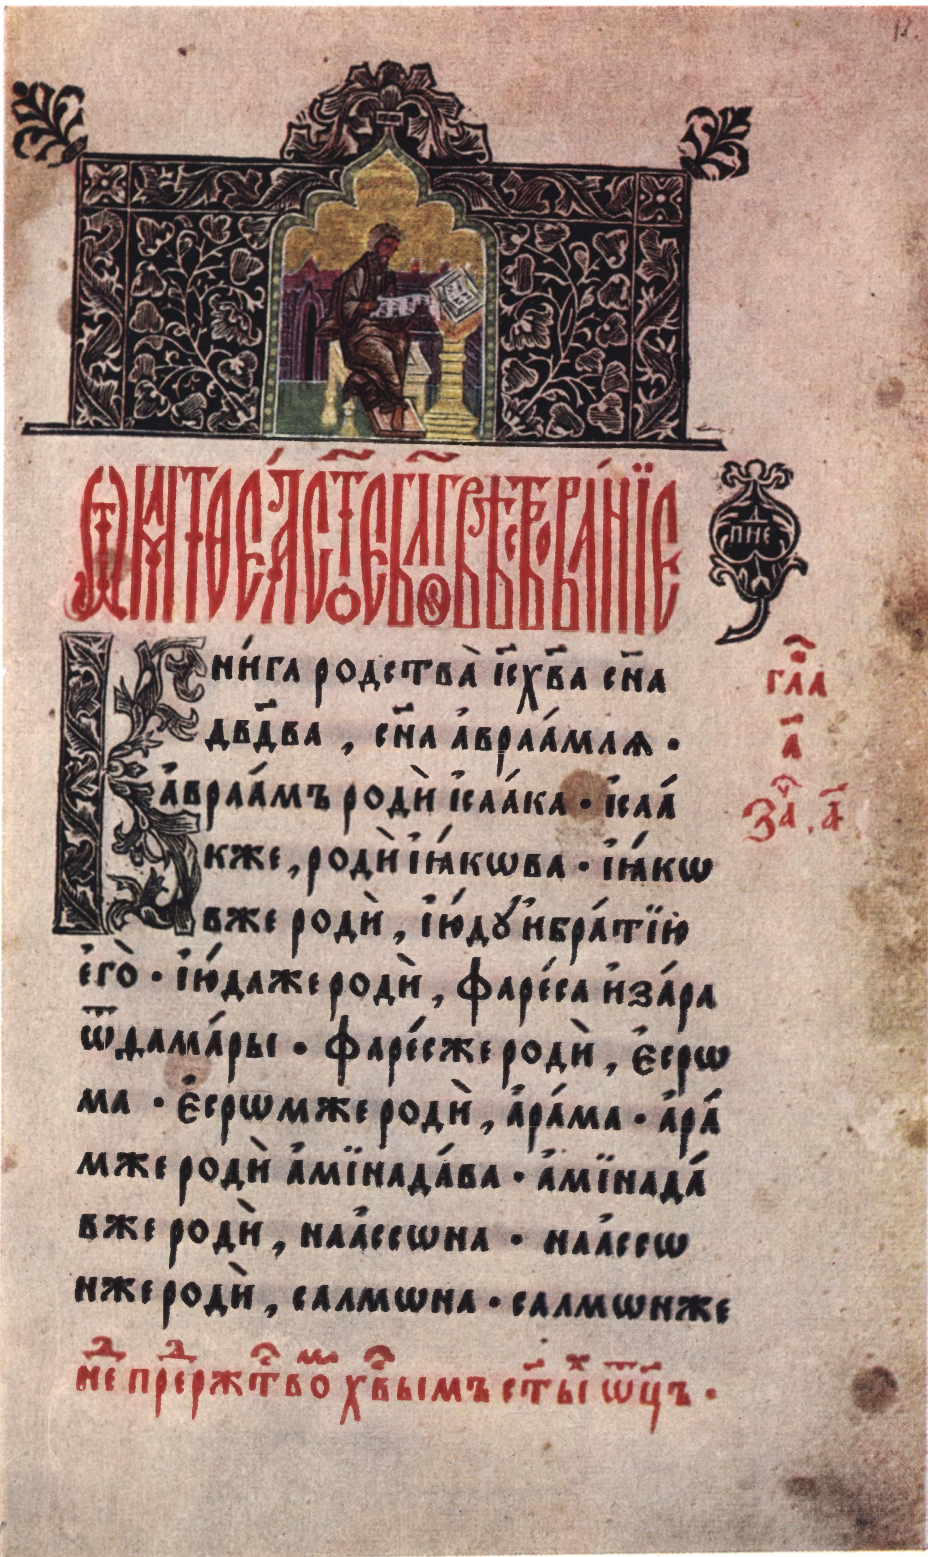 ѿ матѳеа ст҃ое бл҃говѣствованїе
нед пне
Кни́га родства̀ і҆с х҃ва сн҃а
дв҃два , сн҃а а҆враа́млѧ ·
а҆враа́мъ родѝ і҆саа́ка · і҆саа́
кже , родѝ і҆ꙗ́кѡва · і҆ꙗ́кѡ
вже родѝ , і҆ю́дꙋ и҆бра́тїю̀
є҆го̀ · і҆ю́даже родѝ , фаре́са и҆за́ра
ѿдама́ры · фаре́сже родѝ , є҆срѡ
ма · є҆срѡмже родѝ , а҆ра́ма · а҆ра́
мже родѝ а҆мїнада́ва · а҆мїнада́
вже родѝ , наа҆ссѡна · наа҆ссѡ
нже родѝ , салмѡна · салмѡнже
гл҃а
а҃
за҃ . а҃
нед҇е пред рж҇твом хв҃ымъ ст҃ых ѡц҃ъ ·